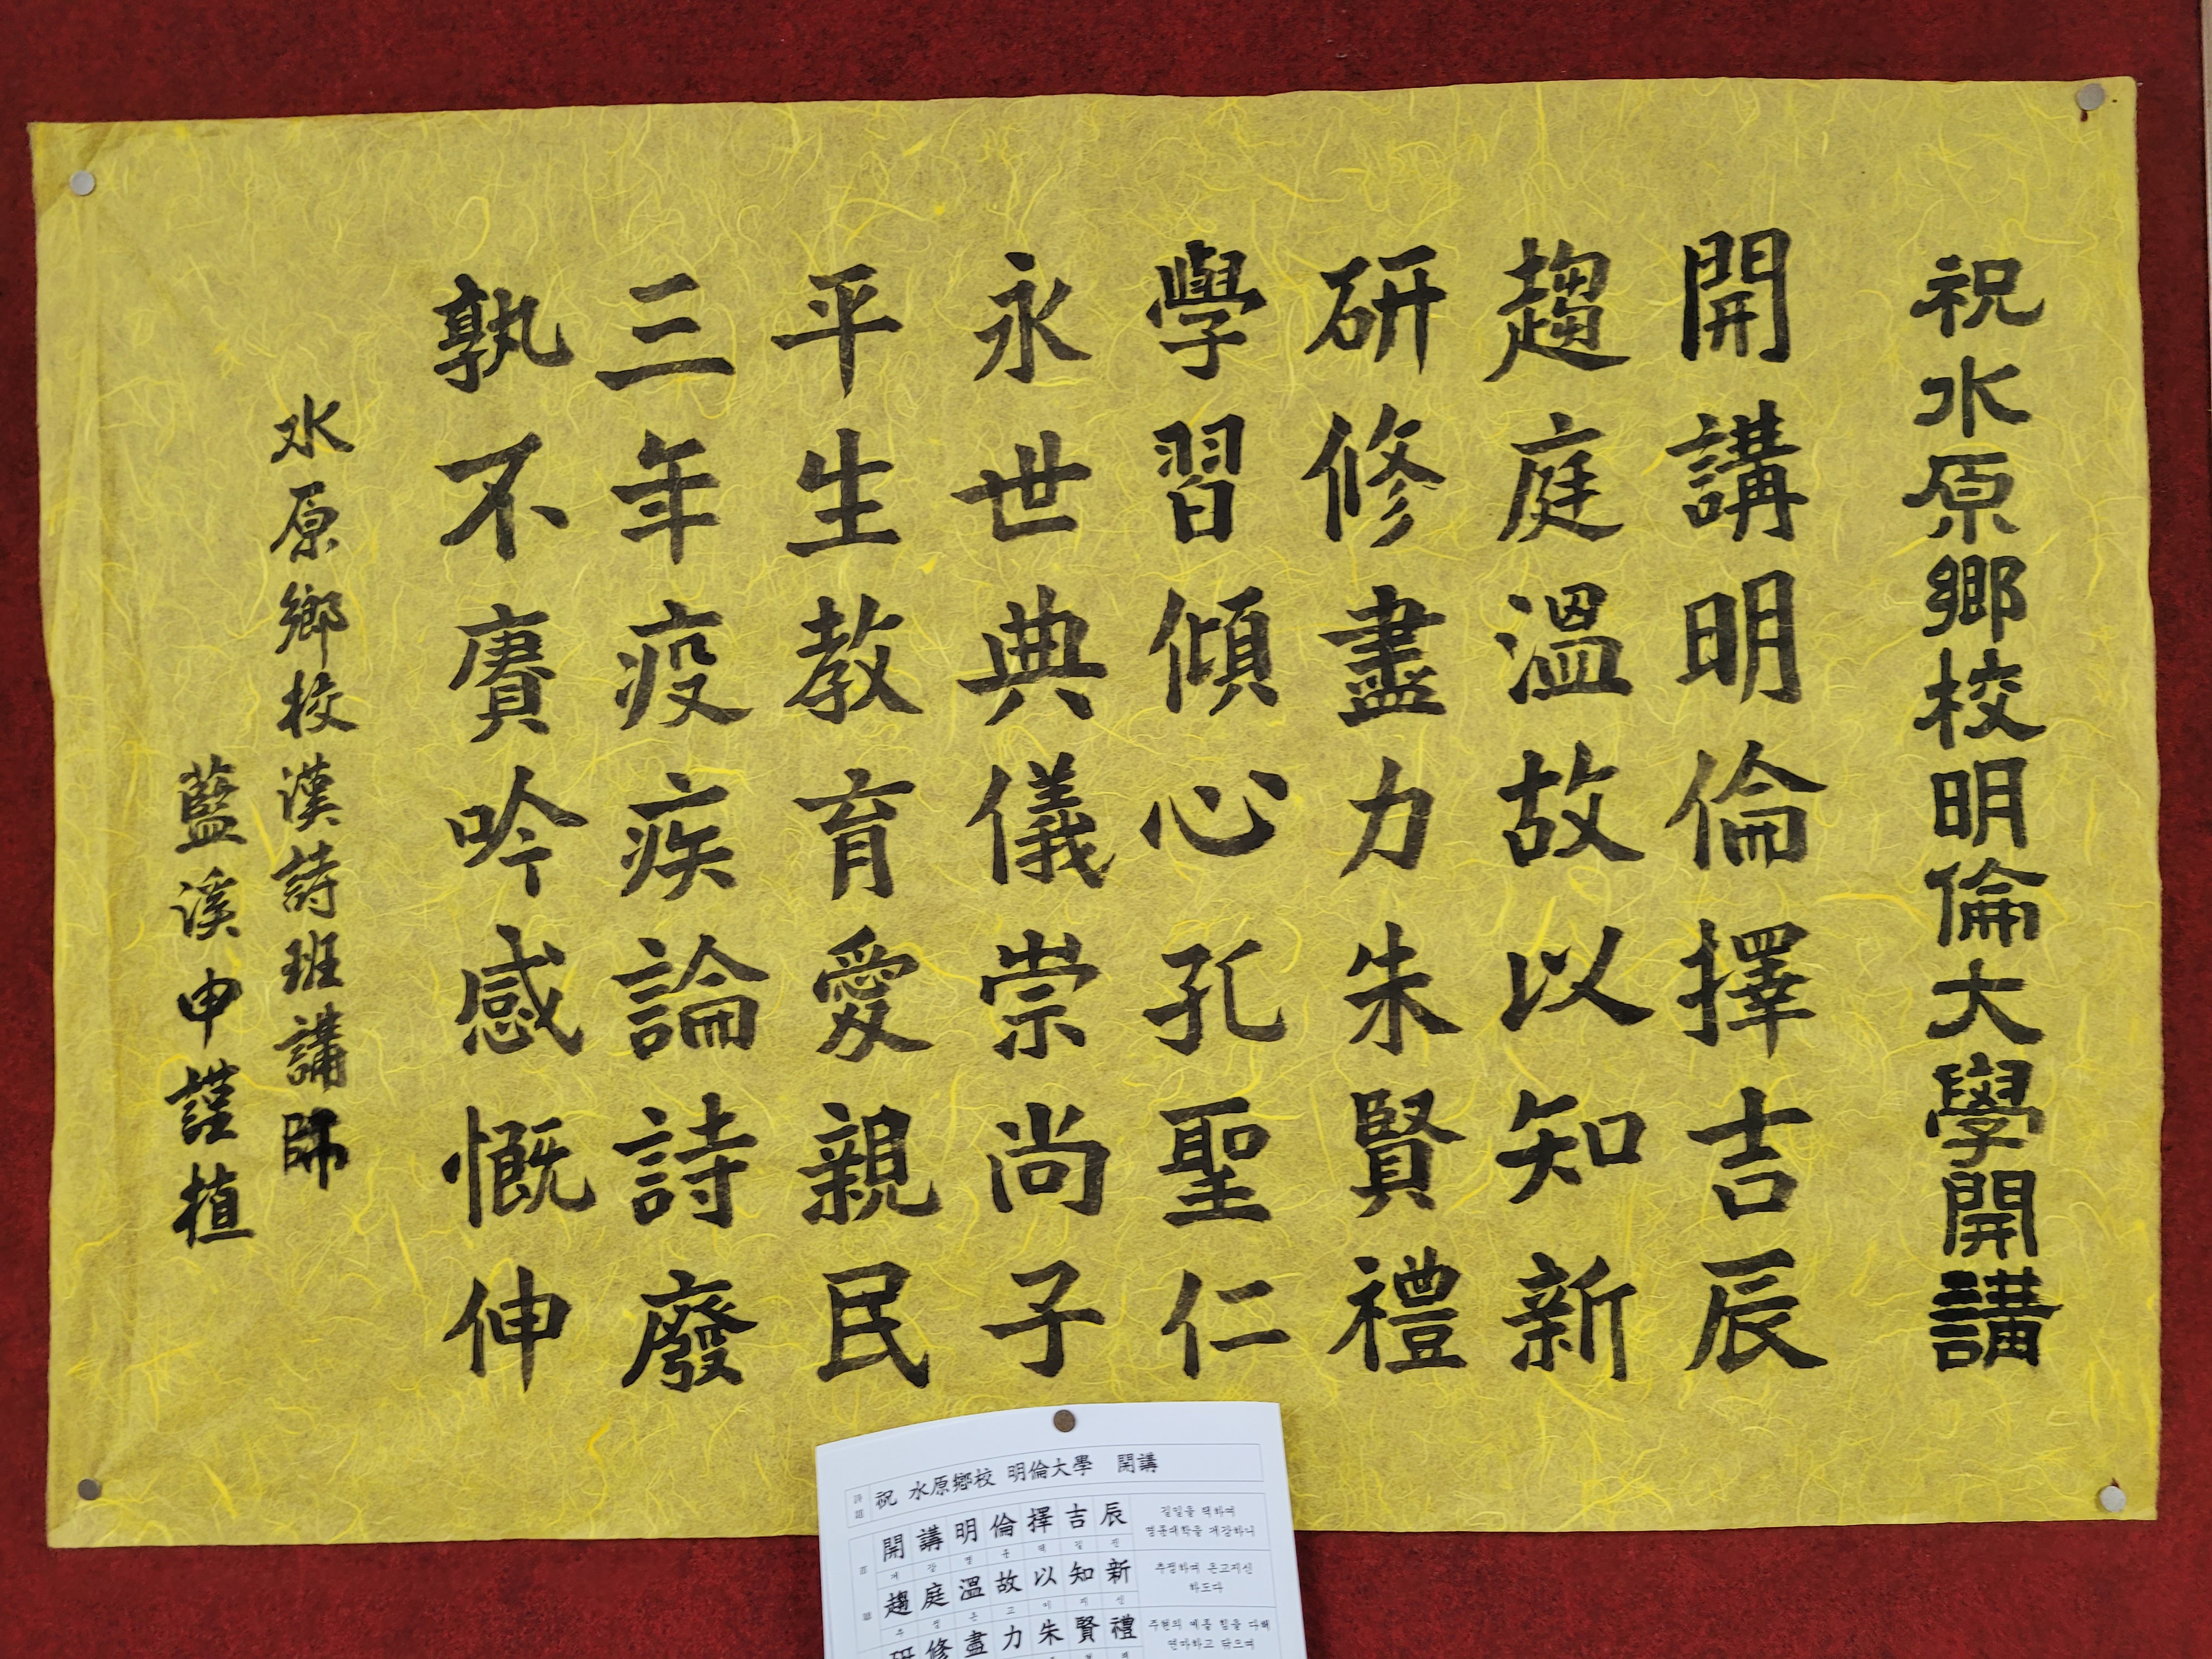 祝水原鄉校明倫大學開講
開講明倫擇吉辰
趨庭溫故以知新
硏修盡力朱賢禮
學習傾心孔聖仁
永世典儀崇尚子
平生教育愛親民
三年疫疾論詩廢
孰不賡吟感慨伸
水原鄉校漢詩班講師
藍溪申謹植
祝 水原鄉校 明倫大學 開講
開講明倫擇吉辰
개강명륜택길진
길일을 택하여
명륜대학을 개강하니
趨庭溫故以知新
추정온고이지신
추정하여 온고지신
하도다
硏修盡力朱賢禮
주현의 예를 힘을 다해
연마하고 닦으며